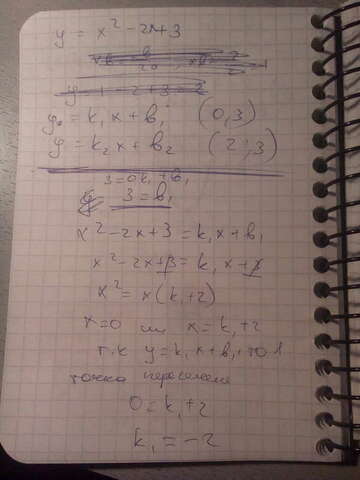 y = x² - 2x + 3
y = 1 - 2 + 3 = 2
y = k₁x + b₁ (0,3)
y = k₂x + b₂ (2;3)
3 = 0k₁ + b₁
3 = b₁
x² - 2x + 3 = k₁x + b₁
x² - 2x + 3 = k₁x + 3
x² = x(k₁ + 2)
x = 0 или x = k₁ + 2
т.к y = k₁x + b₁, то 1
точка
0 = k₁ + 2
k₁ = -2